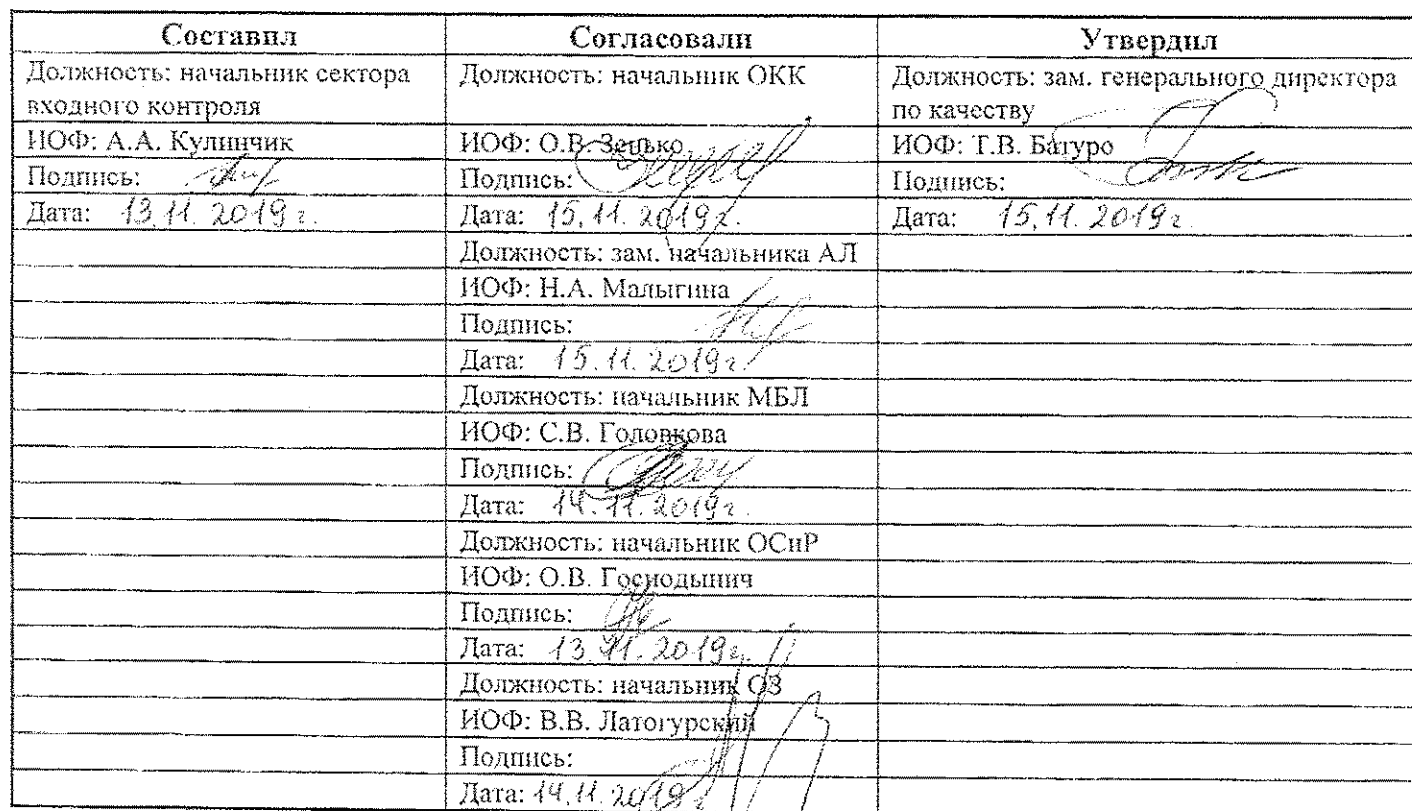 Составил Согласовали Утвердил
Должность: начальник сектора Должность: начальник ОКК Должность: зам. генерального директора
входного контроля по качеству
ИОФ: А.А. Кулинчик ИОФ: О.В. Зенько ИОФ: Т.В. Батуро
Подпись: Подпись: Подпись:
Дата: 13.11.2019г. Дата: 15.11.2019г. Дата: 15.11.2019г.
Должность: зам. начальника АЛ
ИОФ: Н.А. Малыгина
Подпись:
Дата: 15.11.2019г.
Должность: начальник МБЛ
ИОФ: С.В. Головкова
Подпись:
Дата: 14.11.2019г.
Должность: начальник ОСиР
ИОФ: О.В. Господынич
Подпись:
Дата: 13.11.2019г.
Должность: начальник ОЗ
ИОФ: В.В. Латогурский
Подпись:
Дата: 14.11.2019г